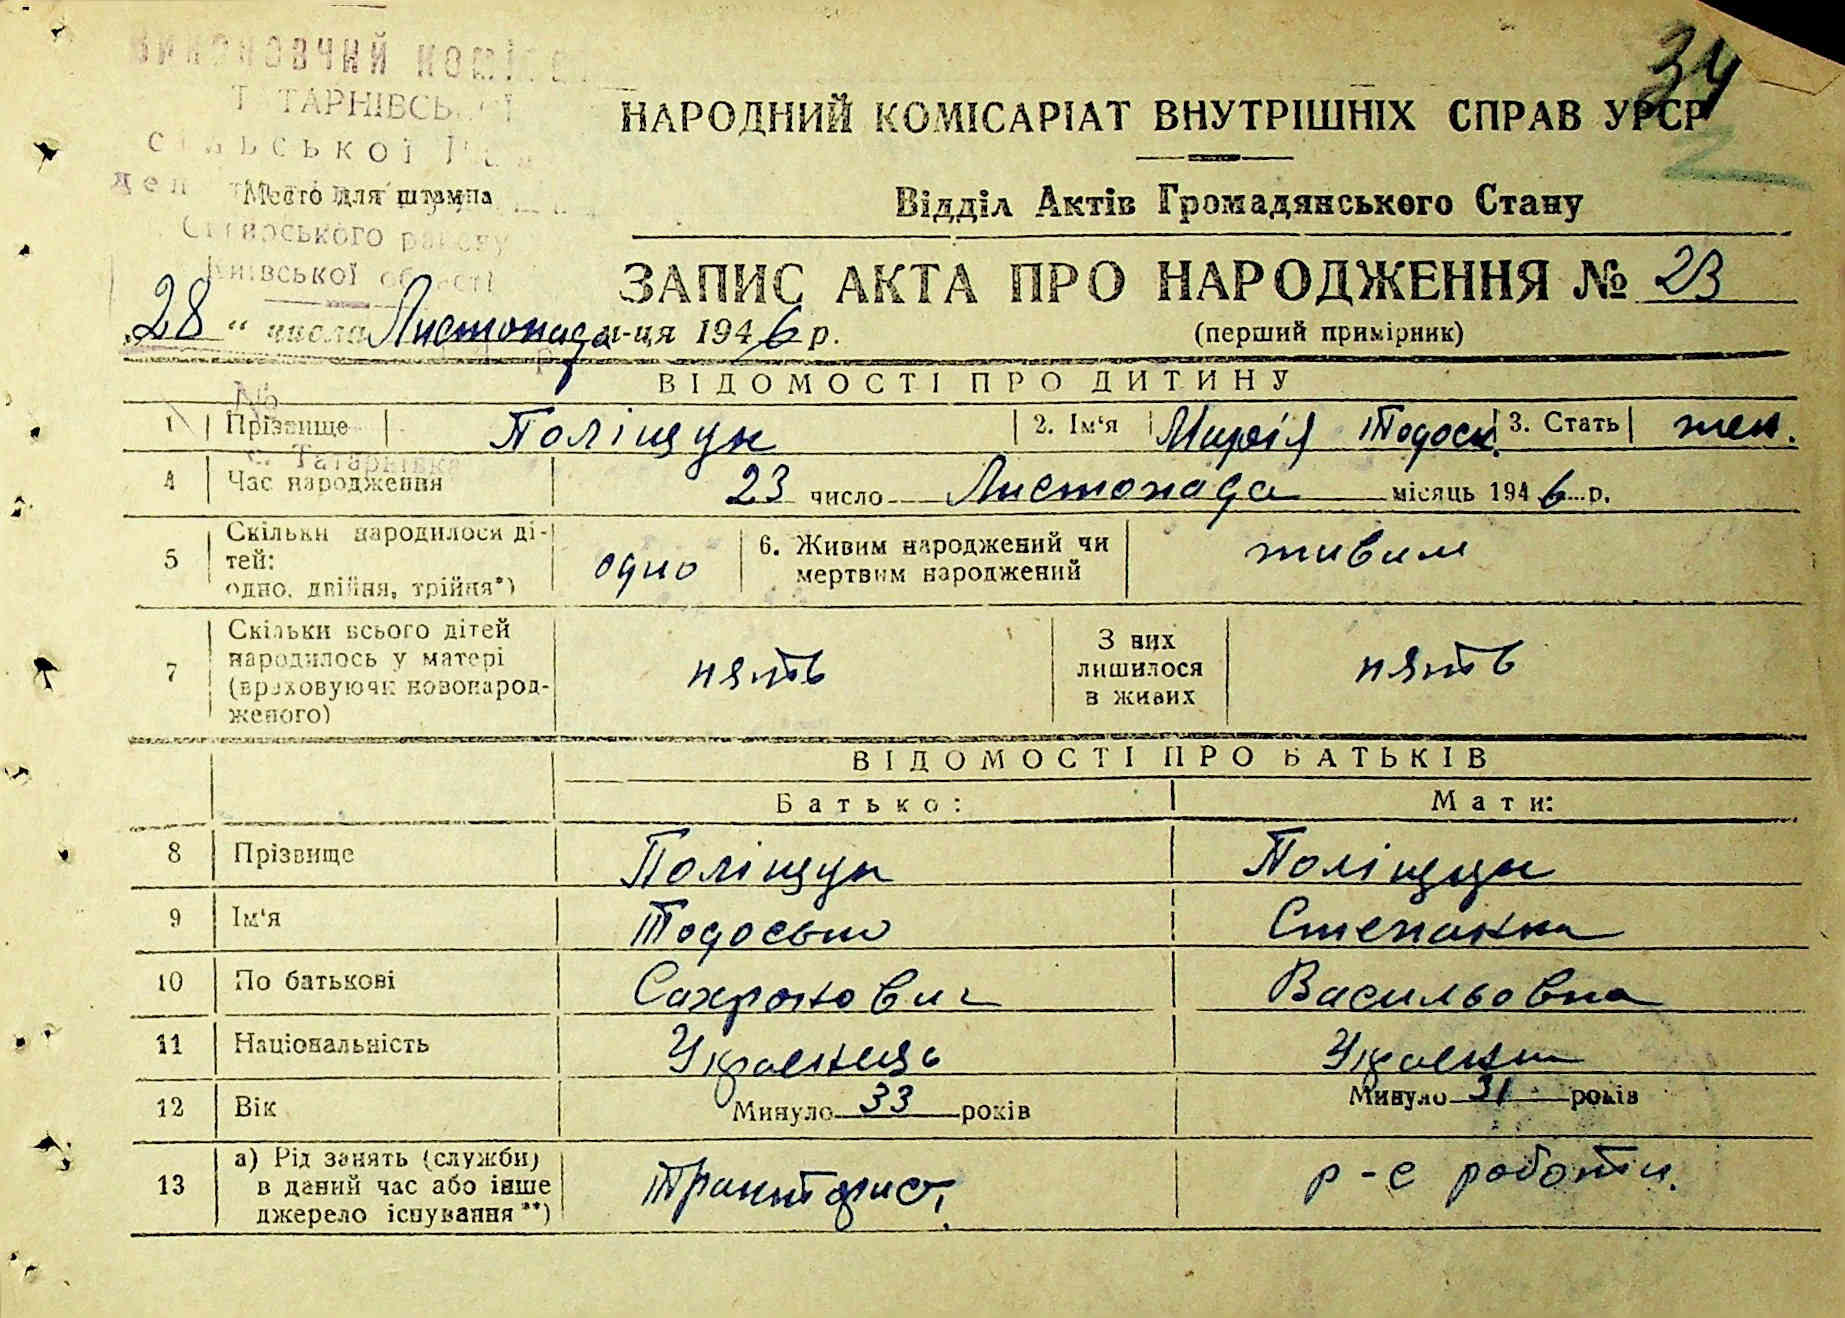 34
ВИКОНАВЧИЙ КОМІТЕТ
ТАТАРНІВСЬКОЇ
сільської
Место для штампа
району
Київської області
НАРОДНИЙ КОМІСАРІАТ ВНУТРІШНІХ СПРАВ УРСР
Відділ Актів Громадянського Стану
ЗАПИС АКТА ПРО НАРОДЖЕННЯ № 23
(перший примірник)
„28“ числа Листопада м-ця 1946 р.
№
с. Татарнівка
ВІДОМОСТІ ПРО ДИТИНУ
1 Прізвище Поліщук 2. Ім‘я Марія Тодоск. 3. Стать жен.
4 Час народження 23 число Листопада місяць 1946 р.
5 Скільки народилося ді-
тей:
одно, двійня, трійня*) одно 6. Живим народжений чи
мертвим народжений живим
7 Скільки всього дітей
народилось у матері
(враховуючи новонарод-
женого) пять З них
лишилося
в живих пять
ВІДОМОСТІ ПРО БАТЬКІВ
Батько: Мати:
8 Прізвище Поліщук Поліщук
9 Ім‘я Тодосьйо Степанна
10 По батькові Сахронович Васильовна
11 Національність Украенць Украенка
12 Вік Минуло 33 років Минуло 31 років
13 а) Рід занять (служби)
в даний час або інше
джерело існування**) Тракторист, р-е роботи.